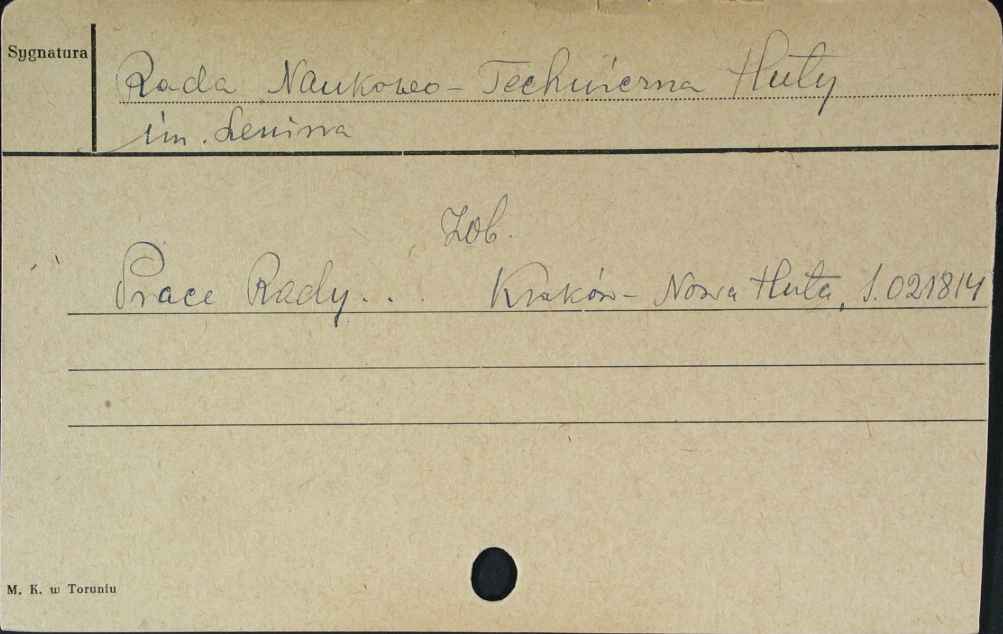 Sygnatura
Rada Naukowo-Techniczna Huty
im. Lenina
Zob.
Prace Rady... Kraków-Nowa Huta, S.021814
M. K. w Toruniu